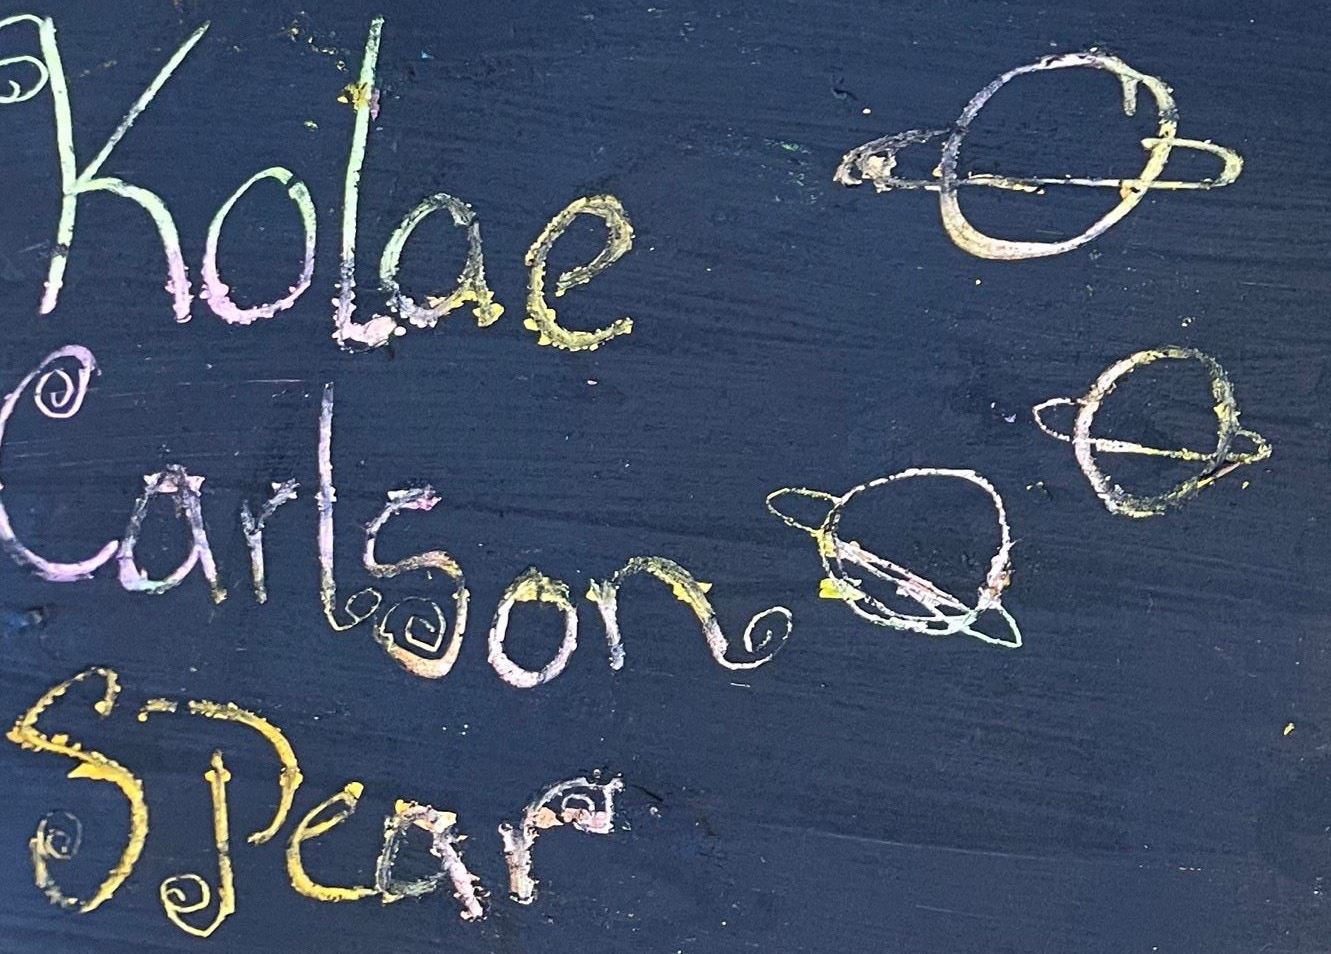 Kolae
Carlson
Spear